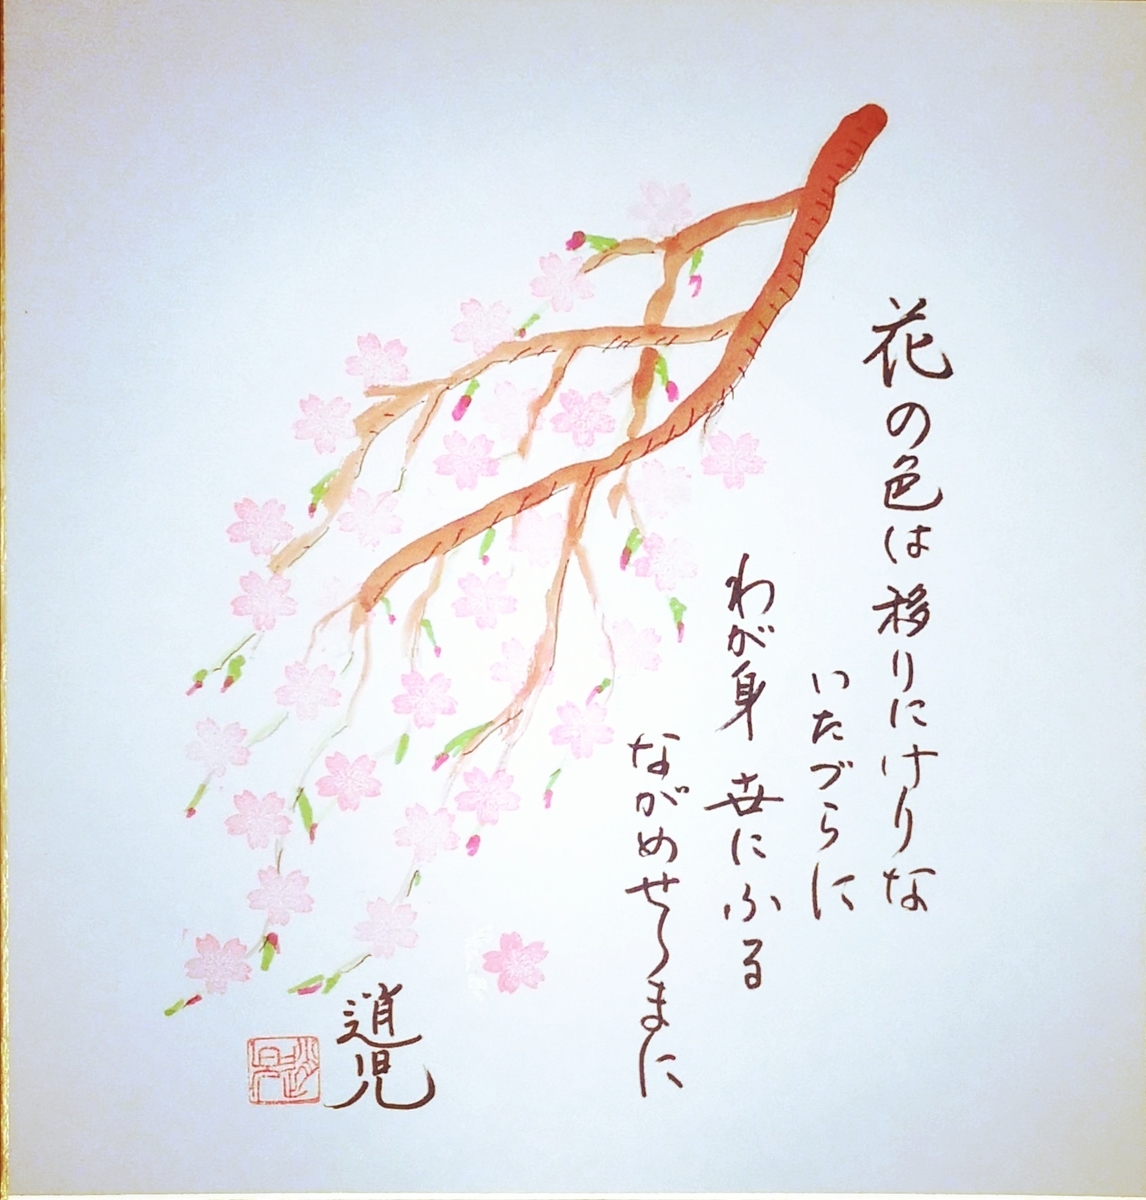 花の色は移りにけりな
いたづらに
わが身世にふる
ながめせしまに
逍児